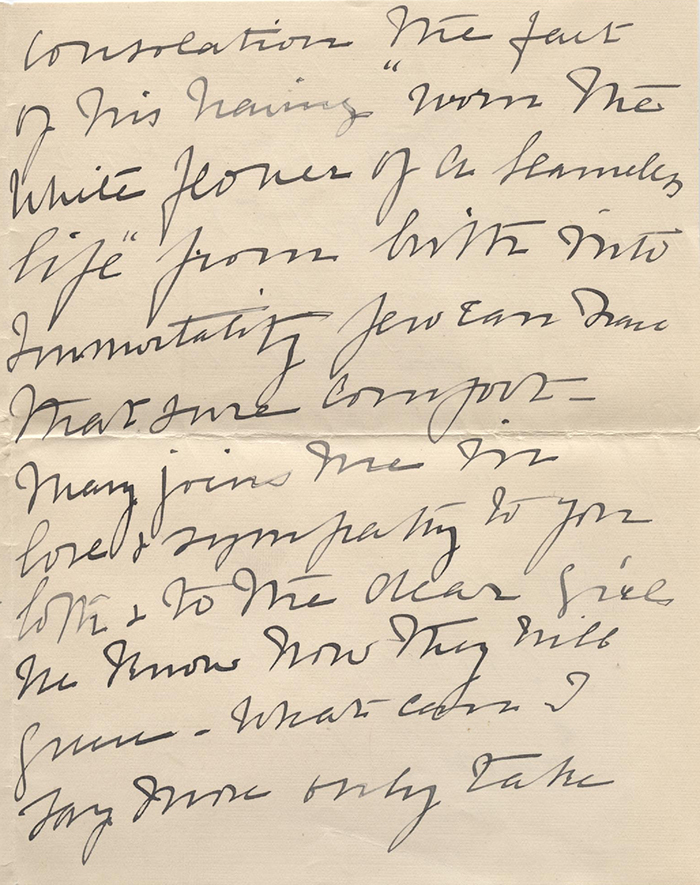 consolation the fact
of his having "worn the
white flower of a blameless
life" from birth into
Immortality few can have
that sure comfort -
Mary joins me in
love & sympathy to you
both & to the dear girls
we know how they will
grieve - What can I
say more only take